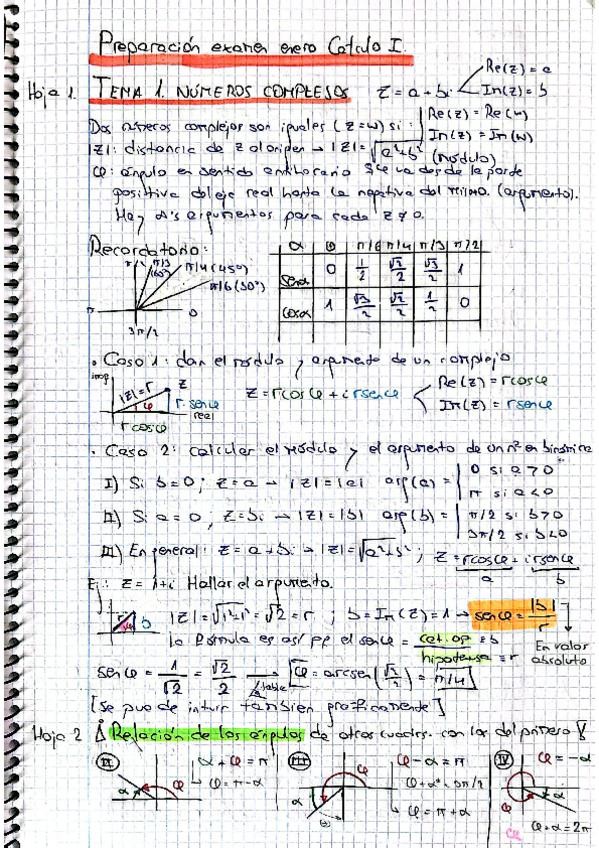 Preparación examen enero Cálculo I.
Hoja 1. TEMA 1. NÚMEROS COMPLEJOS z = a + bi Re(z) = a
Im(z) = b
Dos números complejos son iguales (z=w) si: Re(z) = Re(w)
Im(z) = Im(w)
|z|: distancia de z al origen → |z| = √a²+b² (módulo)
φ: ángulo en sentido antihorario que va desde la parte
positiva del eje real hasta la negativa del mismo. (argumento).
Hay ∞'s argumentos para cada z ≠ 0.
Recordatorio:
π/2 π/3 (60º) π/4 (45º) π/6 (30º)
π 0
3π/2
α 0 π/6 π/4 π/3 π/2
senα 0 1/2 √2/2 √3/2 1
cosα 1 √3/2 √2/2 1/2 0
· Caso 1: dan el módulo y argumento de un complejo
imag |z|=r z
φ r·senφ
real
r cosφ
z = r cosφ + i r senφ Re(z) = r cosφ
Im(z) = r senφ
· Caso 2: calcular el módulo y el argumento de un nº en binómica
I) Si b=0; z=a → |z|=|a| arg(a) = 0 si a>0
π si a<0
II) Si a=0; z=bi → |z|=|b| arg(b) = π/2 si b>0
3π/2 si b<0
III) En general: z = a+bi → |z|=√a²+b²; z = r cosφ + i r senφ
a b
Ej: z = 1+i Hallar el argumento.
b |z| = √1²+1² = √2 = r ; b = Im(z) = 1 → senφ = |b|/r
la fórmula es así pq el senφ = cat. op = b
hipotenusa = r
En valor
absoluto
senφ = 1/√2 = √2/2 → tabla φ = arcsen(√2/2) = π/4
[Se puede intuir también gráficamente]
Hoja 2 ¡Relación de los ángulos de otros cuadr. con los del primero!
II α + φ = π
φ = π - α
III φ - α = π
φ = π + α
IV φ = -α
φ + α = 2π